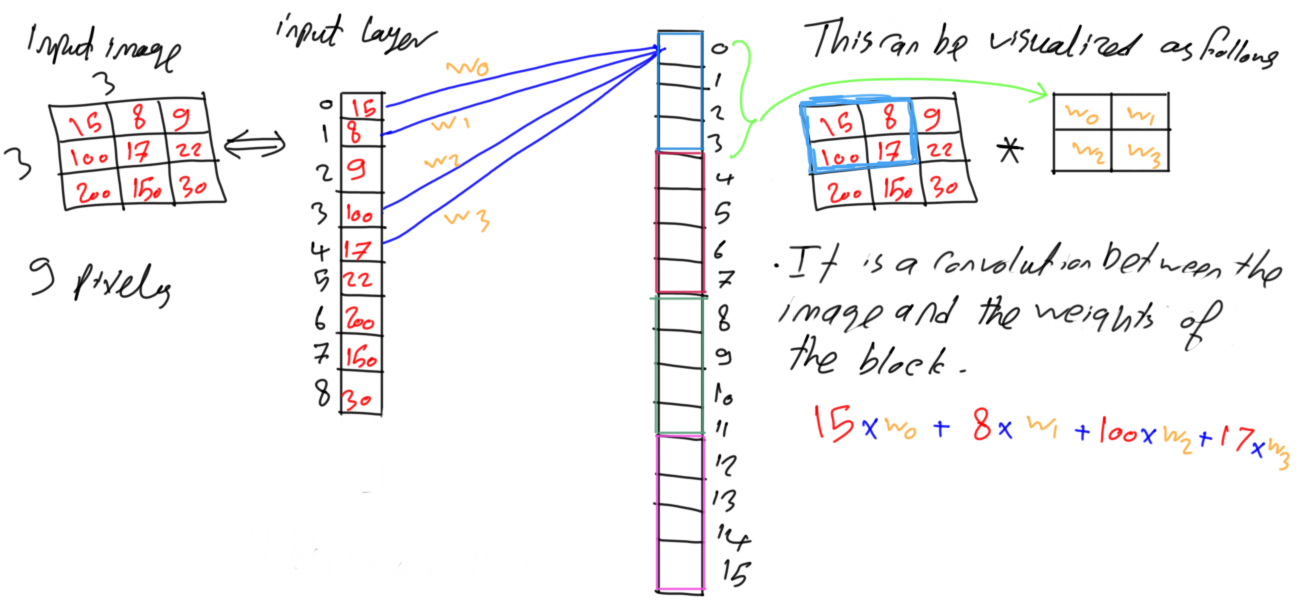 Input image
3
3
15 8 9
100 17 22
200 150 30
9 pixels
input layer
0 15
1 8
2 9
3 100
4 17
5 22
6 200
7 150
8 30
w0
w1
w2
w3
0
1
2
3
4
5
6
7
8
9
10
11
12
13
14
15
This can be visualized as follows
15 8 9
100 17 22
200 150 30
*
w0 w1
w2 w3
. It is a convolution between the
image and the weights of
the block.
15 x w0 + 8 x w1 + 100 x w2 + 17 x w3